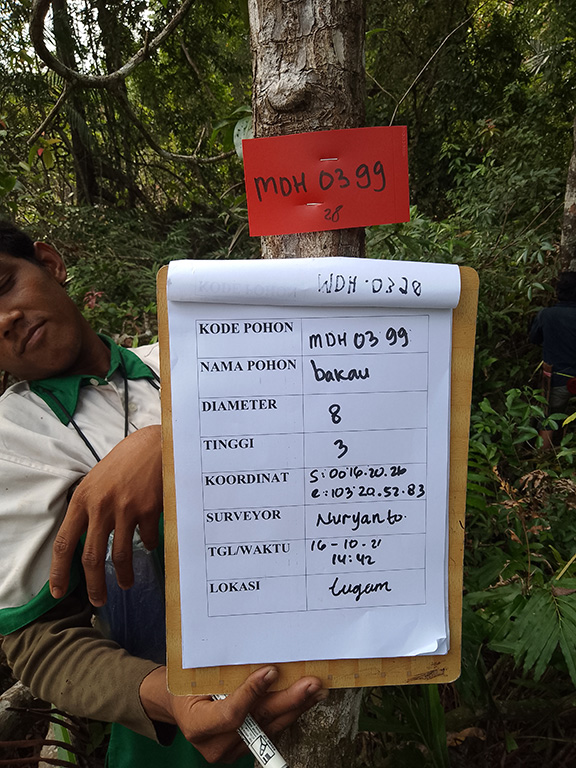 MDH 0399
28
WDH.0320
KODE POHON MDH 0399
NAMA POHON bakau
DIAMETER 8
TINGGI 3
KOORDINAT S:00.16.20.26
e:103.20.52.83
SURVEYOR Nuryanto.
TGL/WAKTU 16-10-21
14:42
LOKASI Lugam